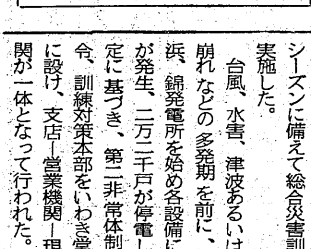 シーズンに備えて総合災害訓
実施した。
台風、水害、津波あるいは
崩れなどの多発期を前に、
浜、錦発電所を始め各設備に
が発生、二万二千戸が停電し
定に基づき、第二非常体制
令、訓練対策本部をいわき営
に設け、支店ー営業機関ー現
関が一体となって行われた。